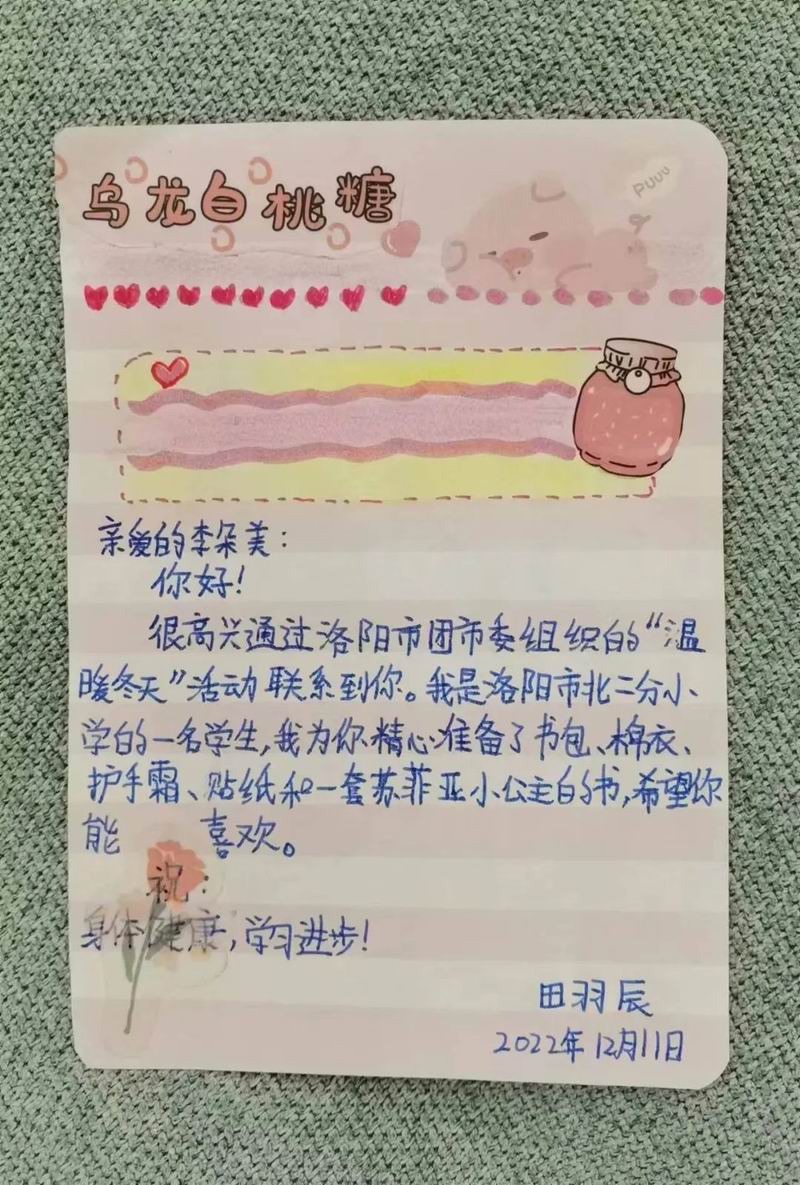 乌龙白桃糖
puuu
亲爱的李朵美：
你好！
很高兴通过洛阳市团市委组织的“温
暖冬天”活动联系到你。我是洛阳市北二分小
学的一名学生，我为你精心准备了书包、棉衣、
护手霜、贴纸和一套苏菲亚小公主的书，希望你
能 喜欢。
祝：
身体健康，学习进步！
田羽辰
2022年12月11日